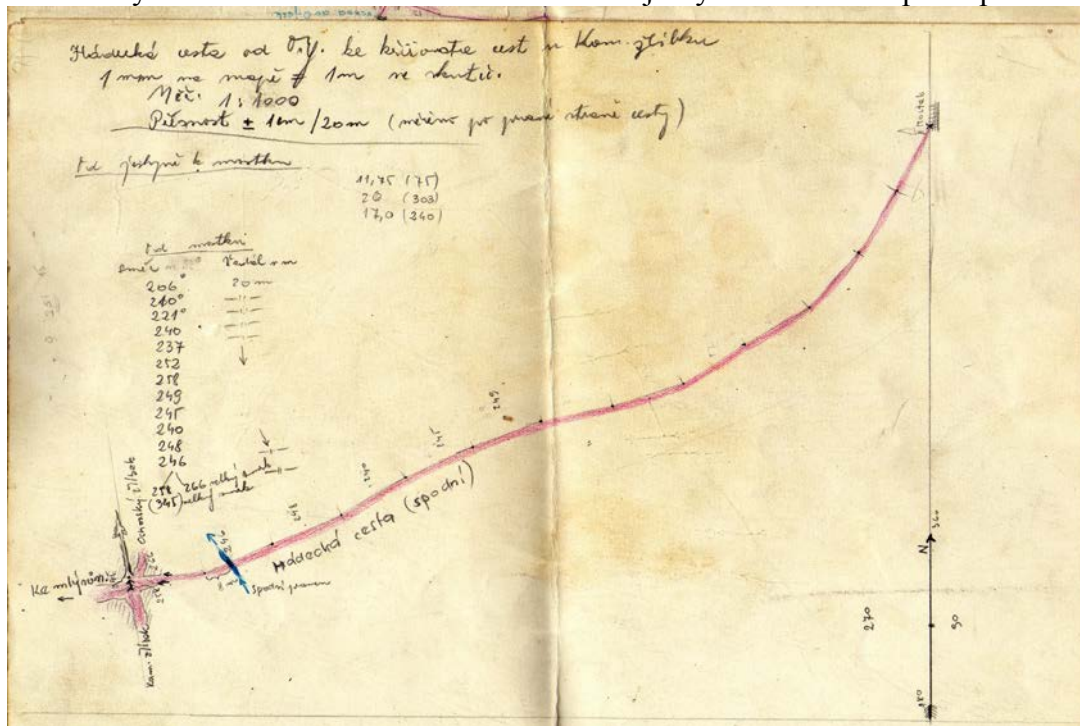 Hádecká cesta od O.J. ke křižovatce cest u Kam. žlíbku
1 mm na mapě = 1m ve skuteč.
Měř. 1:1000
Přesnost ± 1cm/20m (měřeno po pravé straně cesty)
Od jeskyně k mostku
11,75 (75)
20 (303)
17,0 (240)
Od mostku
směr
Vzdál. v m
206° 20m
210° —〃—
221° —〃—
240 —〃—
237
252
258
249
245
240
248
246
258 266 velký smrk
(345) velký smrk
Mostek
249
245
240
248
246
Hádecká cesta (spodní)
Spodní pramen
8 m
Ochozský žlíbek
Ke mlýnům
Kam. žlíbek
N
360
270
90
180